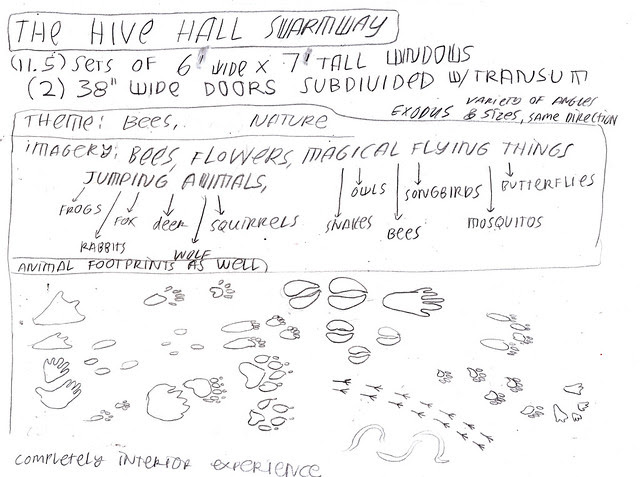 THE HIVE HALL SWARMWAY
(11.5) SETS OF 6' WIDE X 7' TALL WINDOWS
(2) 38" WIDE DOORS SUBDIVIDED W/TRANSUM
THEME: BEES, NATURE
EXODUS VARIETY OF ANGLES
& SIZES, SAME DIRECTION
IMAGERY: BEES, FLOWERS, MAGICAL FLYING THINGS
JUMPING ANIMALS,
OWLS SONGBIRDS BUTTERFLIES
FROGS FOX deer SQUIRRELS SNAKES BEES MOSQUITOS
RABBITS WOLF
ANIMAL FOOTPRINTS AS WELL
completely INTERIOR EXPERIENCE